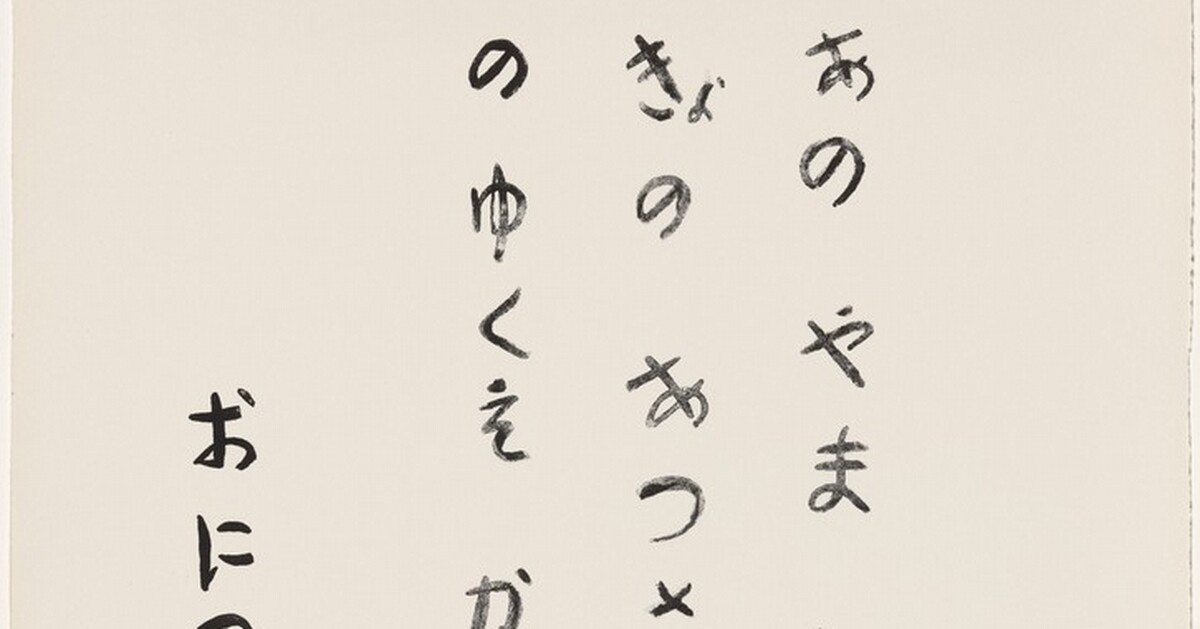 あの やま
きょの あつ
の ゆくえ か
おに